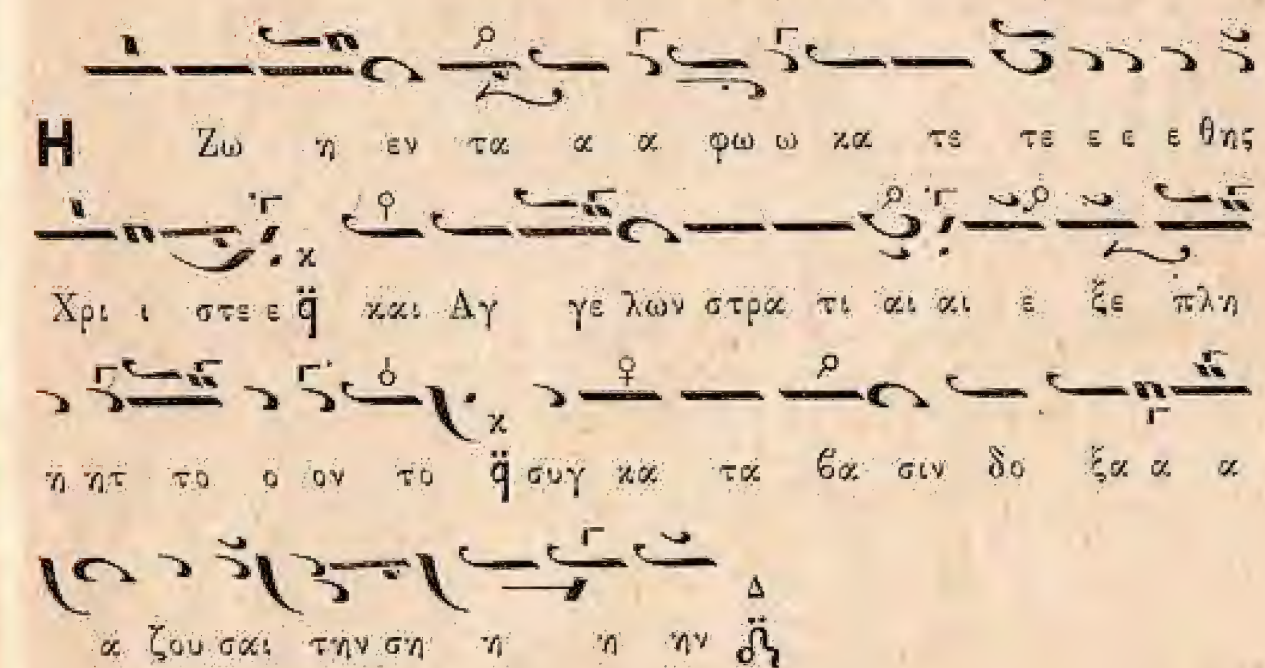 Η Ζω η εν τα α α φω ω κα τε τε ε ε ε θης
Χρι ι στε ε q κ και Αγ γε λων στρα τι αι αι ε ξε πλη
η ητ το ο ον το q κ συγ κα τα βα σιν δο ξα α α
α ζου σαι την ση η η ην Δ